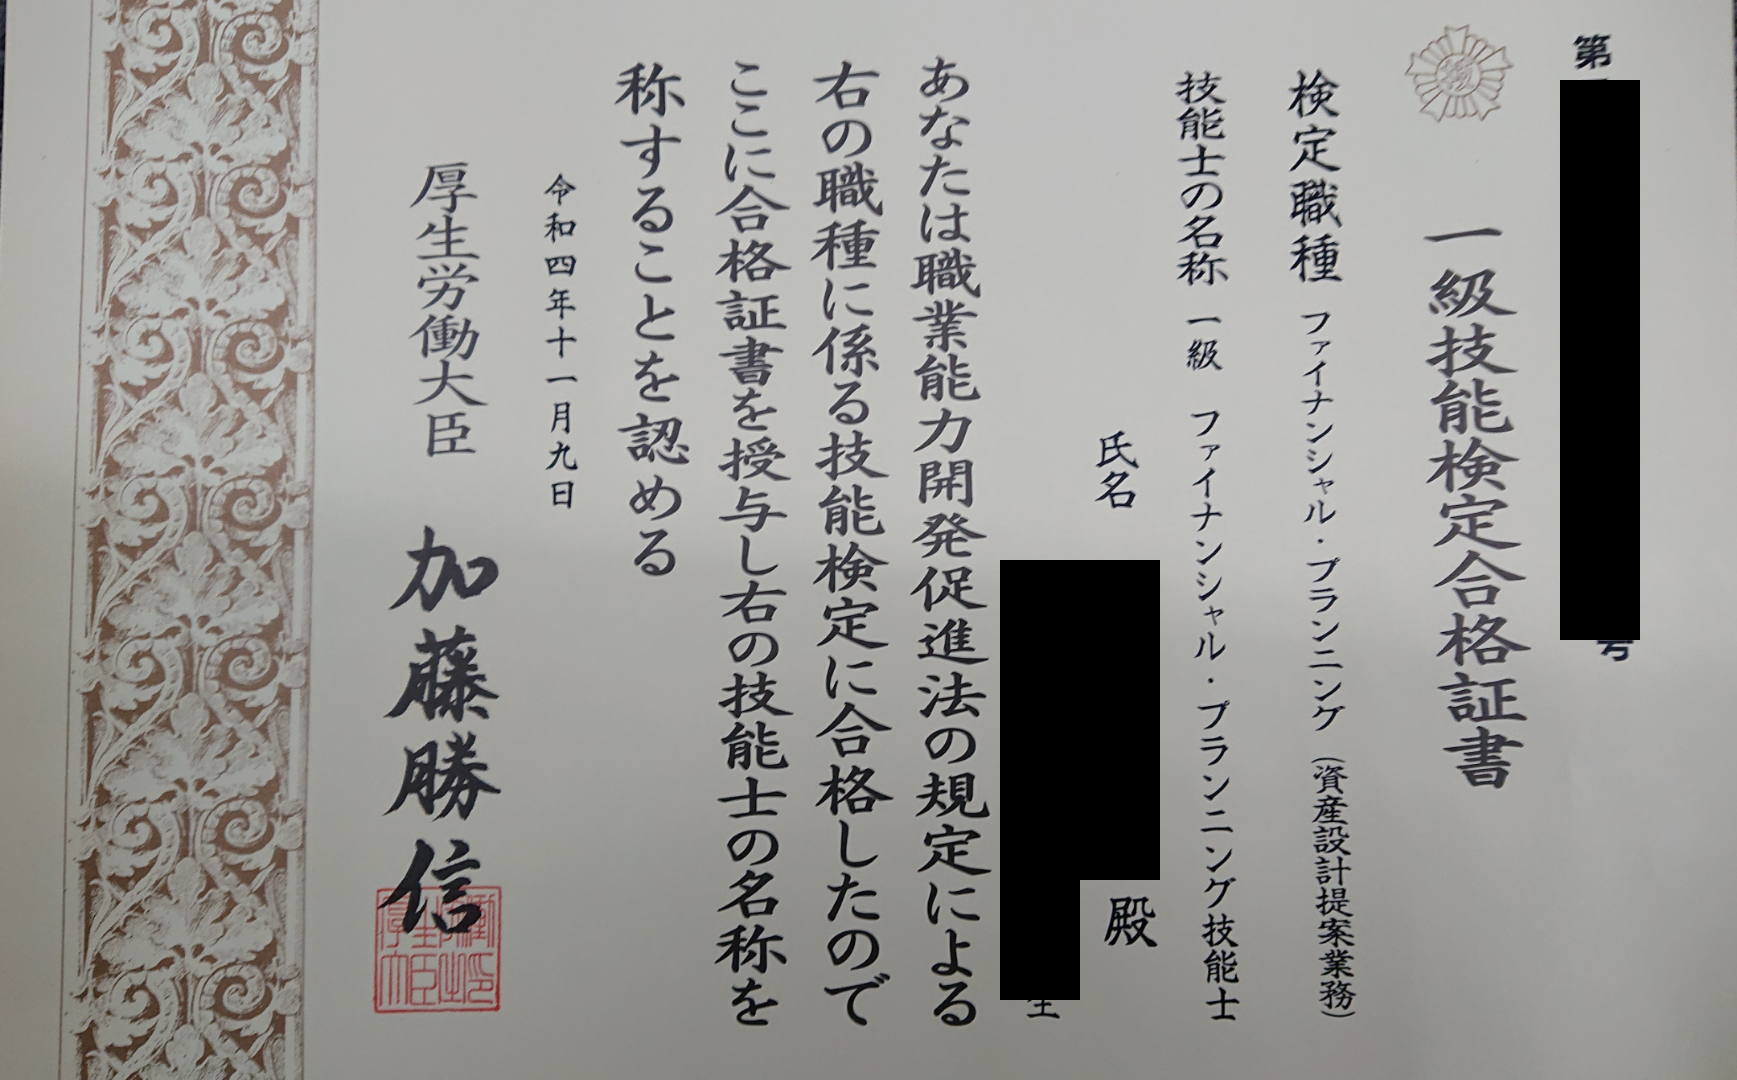 第
号
一級技能検定合格証書
検定職種 ファイナンシャル・プランニング（資産設計提案業務）
技能士の名称 一級 ファイナンシャル・プランニング技能士
氏名
殿
生
あなたは職業能力開発促進法の規定による
右の職種に係る技能検定に合格したので
ここに合格証書を授与し右の技能士の名称を
称することを認める
令和四年十一月九日
厚生労働大臣 加藤勝信